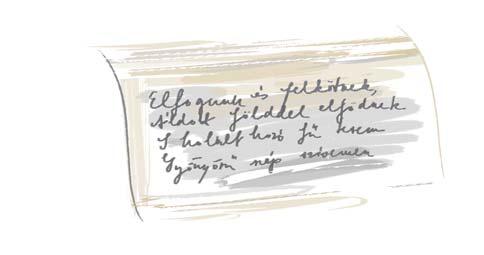 Elfognak és felkötnek,
Áldott földdel elfödnek
S halált hozó fű terem
Gyönyörű szép szivemen